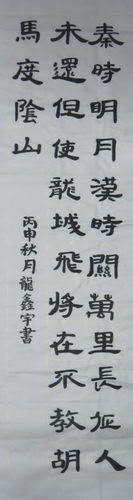 秦時明月漢時關萬里長征人
未還但使龍城飛將在不教胡
馬度陰山
丙申秋月龍鑫宇書